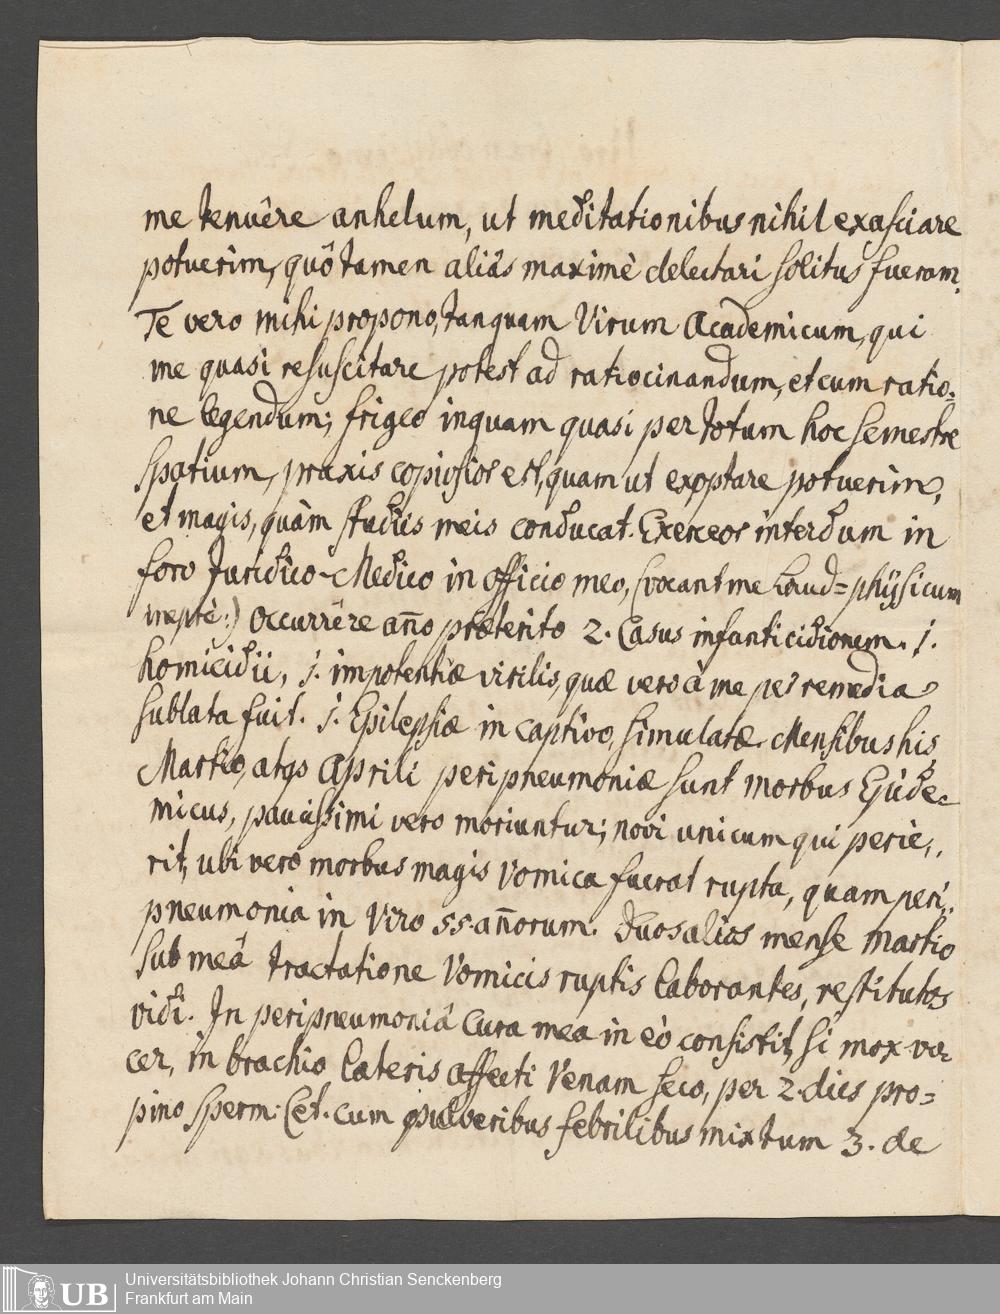 me tenuêre anhelum, ut meditationibus nihil exasciare
potuerim, quô tamen aliâs maximè delectari solitus fueram.
Te vero mihi propono, tanquam Virum Academicum, qui
me quasi resuscitare potest ad ratiocinandum, et cum ratio=
ne legendum; frigeo inquam quasi per totum hoc semestre
spatium, praxis copiosior est, quam ut exoptare potuerim,
et magis, quàm studiis meis conducat. Exerceor interdum in
foro Juridico-Medico in officio meo, (vocant me Land=physicum
ineptè:) Occurrêre anño præterito 2. Casus infanticidiorum. 1.
homicidii, 1. impotentiæ virilis, quæ vero à me per remedia
sublata fuit. 1. Epilepsiæ in captivo, simulatæ. Mensibus his
Martio, atqs Aprili peripneumoniæ sunt morbus Epide-
micus, paucissimi vero moriuntur; novi unicum qui perie,,
rit, ubi vero morbus magis Vomica fuerat rupta, quam peri,
pneumonia in Viro 55. añorum. Duos alios mense Martio
sub meâ tractatione Vomicis ruptis laborantes, restitutos
vidi. In peripneumoniâ Cura mea in eò consistit, si mox vo,
cer, in brachio lateris affecti Venam seco, per 2. dies pro=
pino sperm: Cet. cum pulveribus febrilibus mixtum 3. de
Universitätsbibliothek Johann Christian Senckenberg
Frankfurt am Main
UB